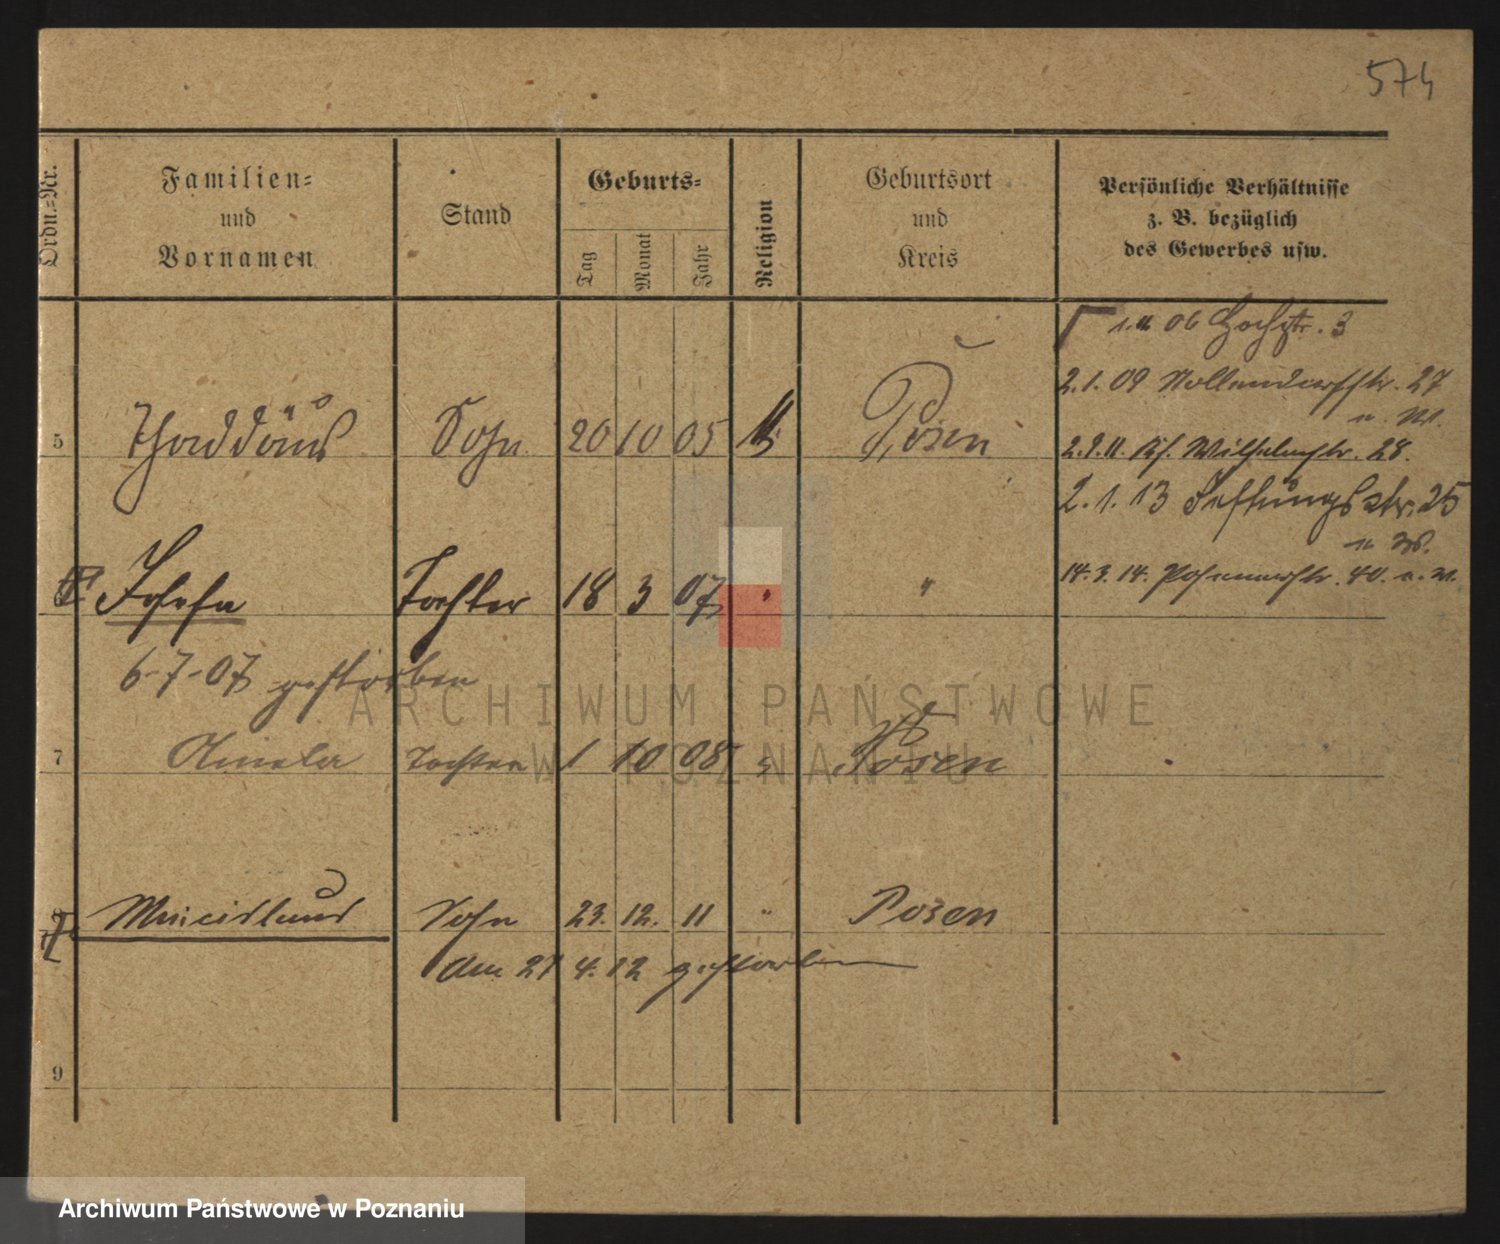 574
Ordn.=Nr.
Familien=
und
Vornamen
Stand
Geburts=
Tag
Monat
Jahr
Religion
Geburtsort
und
Kreis
Persönliche Verhältnisse
z. B. bezüglich
des Gewerbes usw.
06 Hochstr. 3
2.1.09 Nollendorfstr. 27
u. W.
5 Thaddäus Sohn 20 10 05 Posen
Wilhelmstr. 28.
2.1.13 Festungsstr. 25
u W.
Josefa Tochter 18 3 07 " "
14.3.14. Posenerstr. 40. u. W.
6-7-07 gestorben
7 Aniela Tochter 1 10 08 Posen
Sohn 23. 12. 11 " Posen
am 21 4. 12 gestorben
9
ARCHIWUM PAŃSTWOWE
W POZNANIU
Archiwum Państwowe w Poznaniu